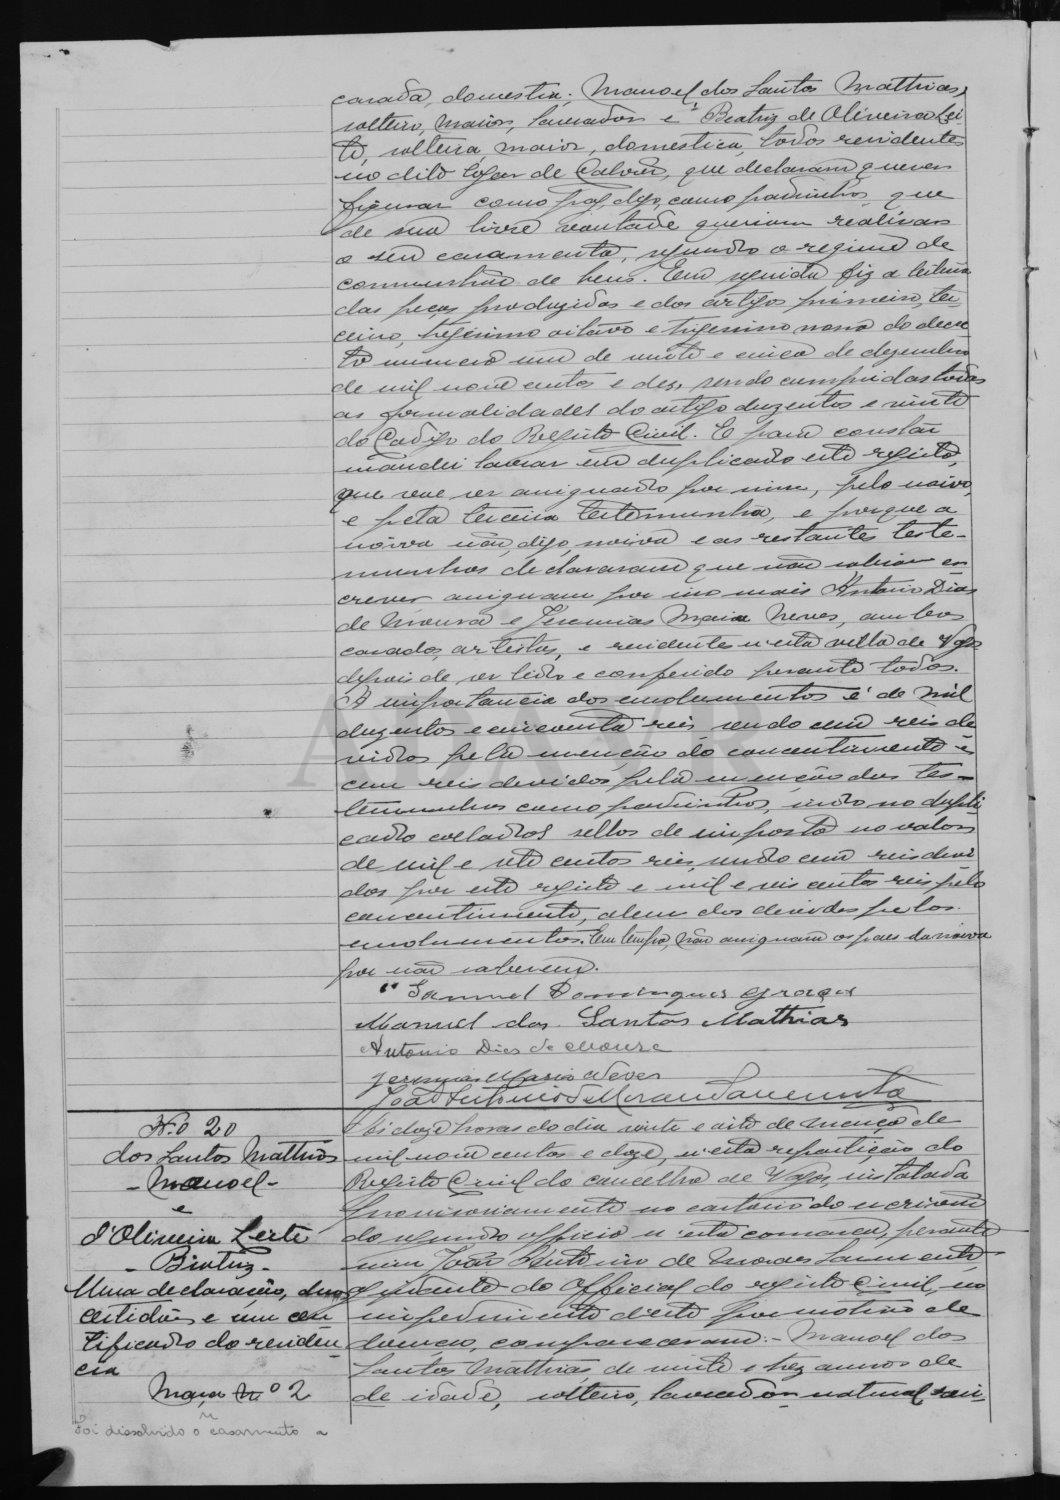 casada, domestica; Manoel dos Santos Mathias,
solteiro, maior, lavrador e Beatriz de Oliveira Lei-
te, solteira, maior, domestica, todos residentes
no dito logar de Calvão, que declaram querer
figurar como digo, como padrinhos, que
de sua livre vontade queriam realisar
o seu casamento, segundo o regimen de
communhão de bens. Em seguida fiz a leitura
das peças produzidas e dos artigos primeiro, ter-
ceiro, trigesimo oitavo e trigesimo nono do decre-
to numero um de vinte e cinco de dezembro
de mil nove centos e dez, sendo cumpridas todas
as formalidades do artigo duzentos e vinte
do Codigo do Registo Civil. E para constar
mandei lavrar em duplicado este registo,
que vae ser assignado por mim, pelo noivo,
e pela terceira testemunha, e porque a
noiva não, digo, noiva e as restantes teste-
munhas declararam que não sabiam es-
crever assignam por isso mais Antonio Dias
de Moura e Jeremias Maria Neves, ambos
casados, artistas, e residentes n'esta villa de Vagos
depois de ser lido e conferido perante todos.
A importancia dos emolumentos é de mil
duzentos e cincoenta reis, sendo cem reis de-
vidos pela menção do consentimento e
cem reis devidos pela menção das tes-
temunhas como padrinhos, indo no dupli-
cado collados sellos de imposto no valor
de mil e sete centos reis, sendo cem reis devi-
dos por este registo e mil e seis centos reis pelo
consentimento, alem dos devidos pelos
emolumentos. Em tempo, não assignam os paes da noiva
por não saberem.
Samuel Domingues Graça
Manuel dos Santos Mathias
Antonio Dias de Moura
Jeremias Maria Neves
João Antonio de Moraes Sarmento
N.º 20
dos Santos Mathias
- Manoel -
e
d'Oliveira Leite
- Beatriz -
Uma declaração, duas
certidões e um cer-
tificado de residen-
cia
Maço Nº 2
Foi dissolvido o casamento
Ás doze horas do dia vinte e oito de Março de
mil nove centos e doze, n'esta repartição do
Registo Civil do concelho de Vagos, installada
provisoriamente no cartorio do escrivão
do segundo officio n'esta comarca, perante
mim João Antonio de Moraes Sarmento,
ajudante do Official do registo Civil, no
impedimento d'este por motivo de
doença, compareceram: - Manoel dos
Santos Mathias, de vinte e trez annos de
de idade, solteiro, lavrador natural e resi-